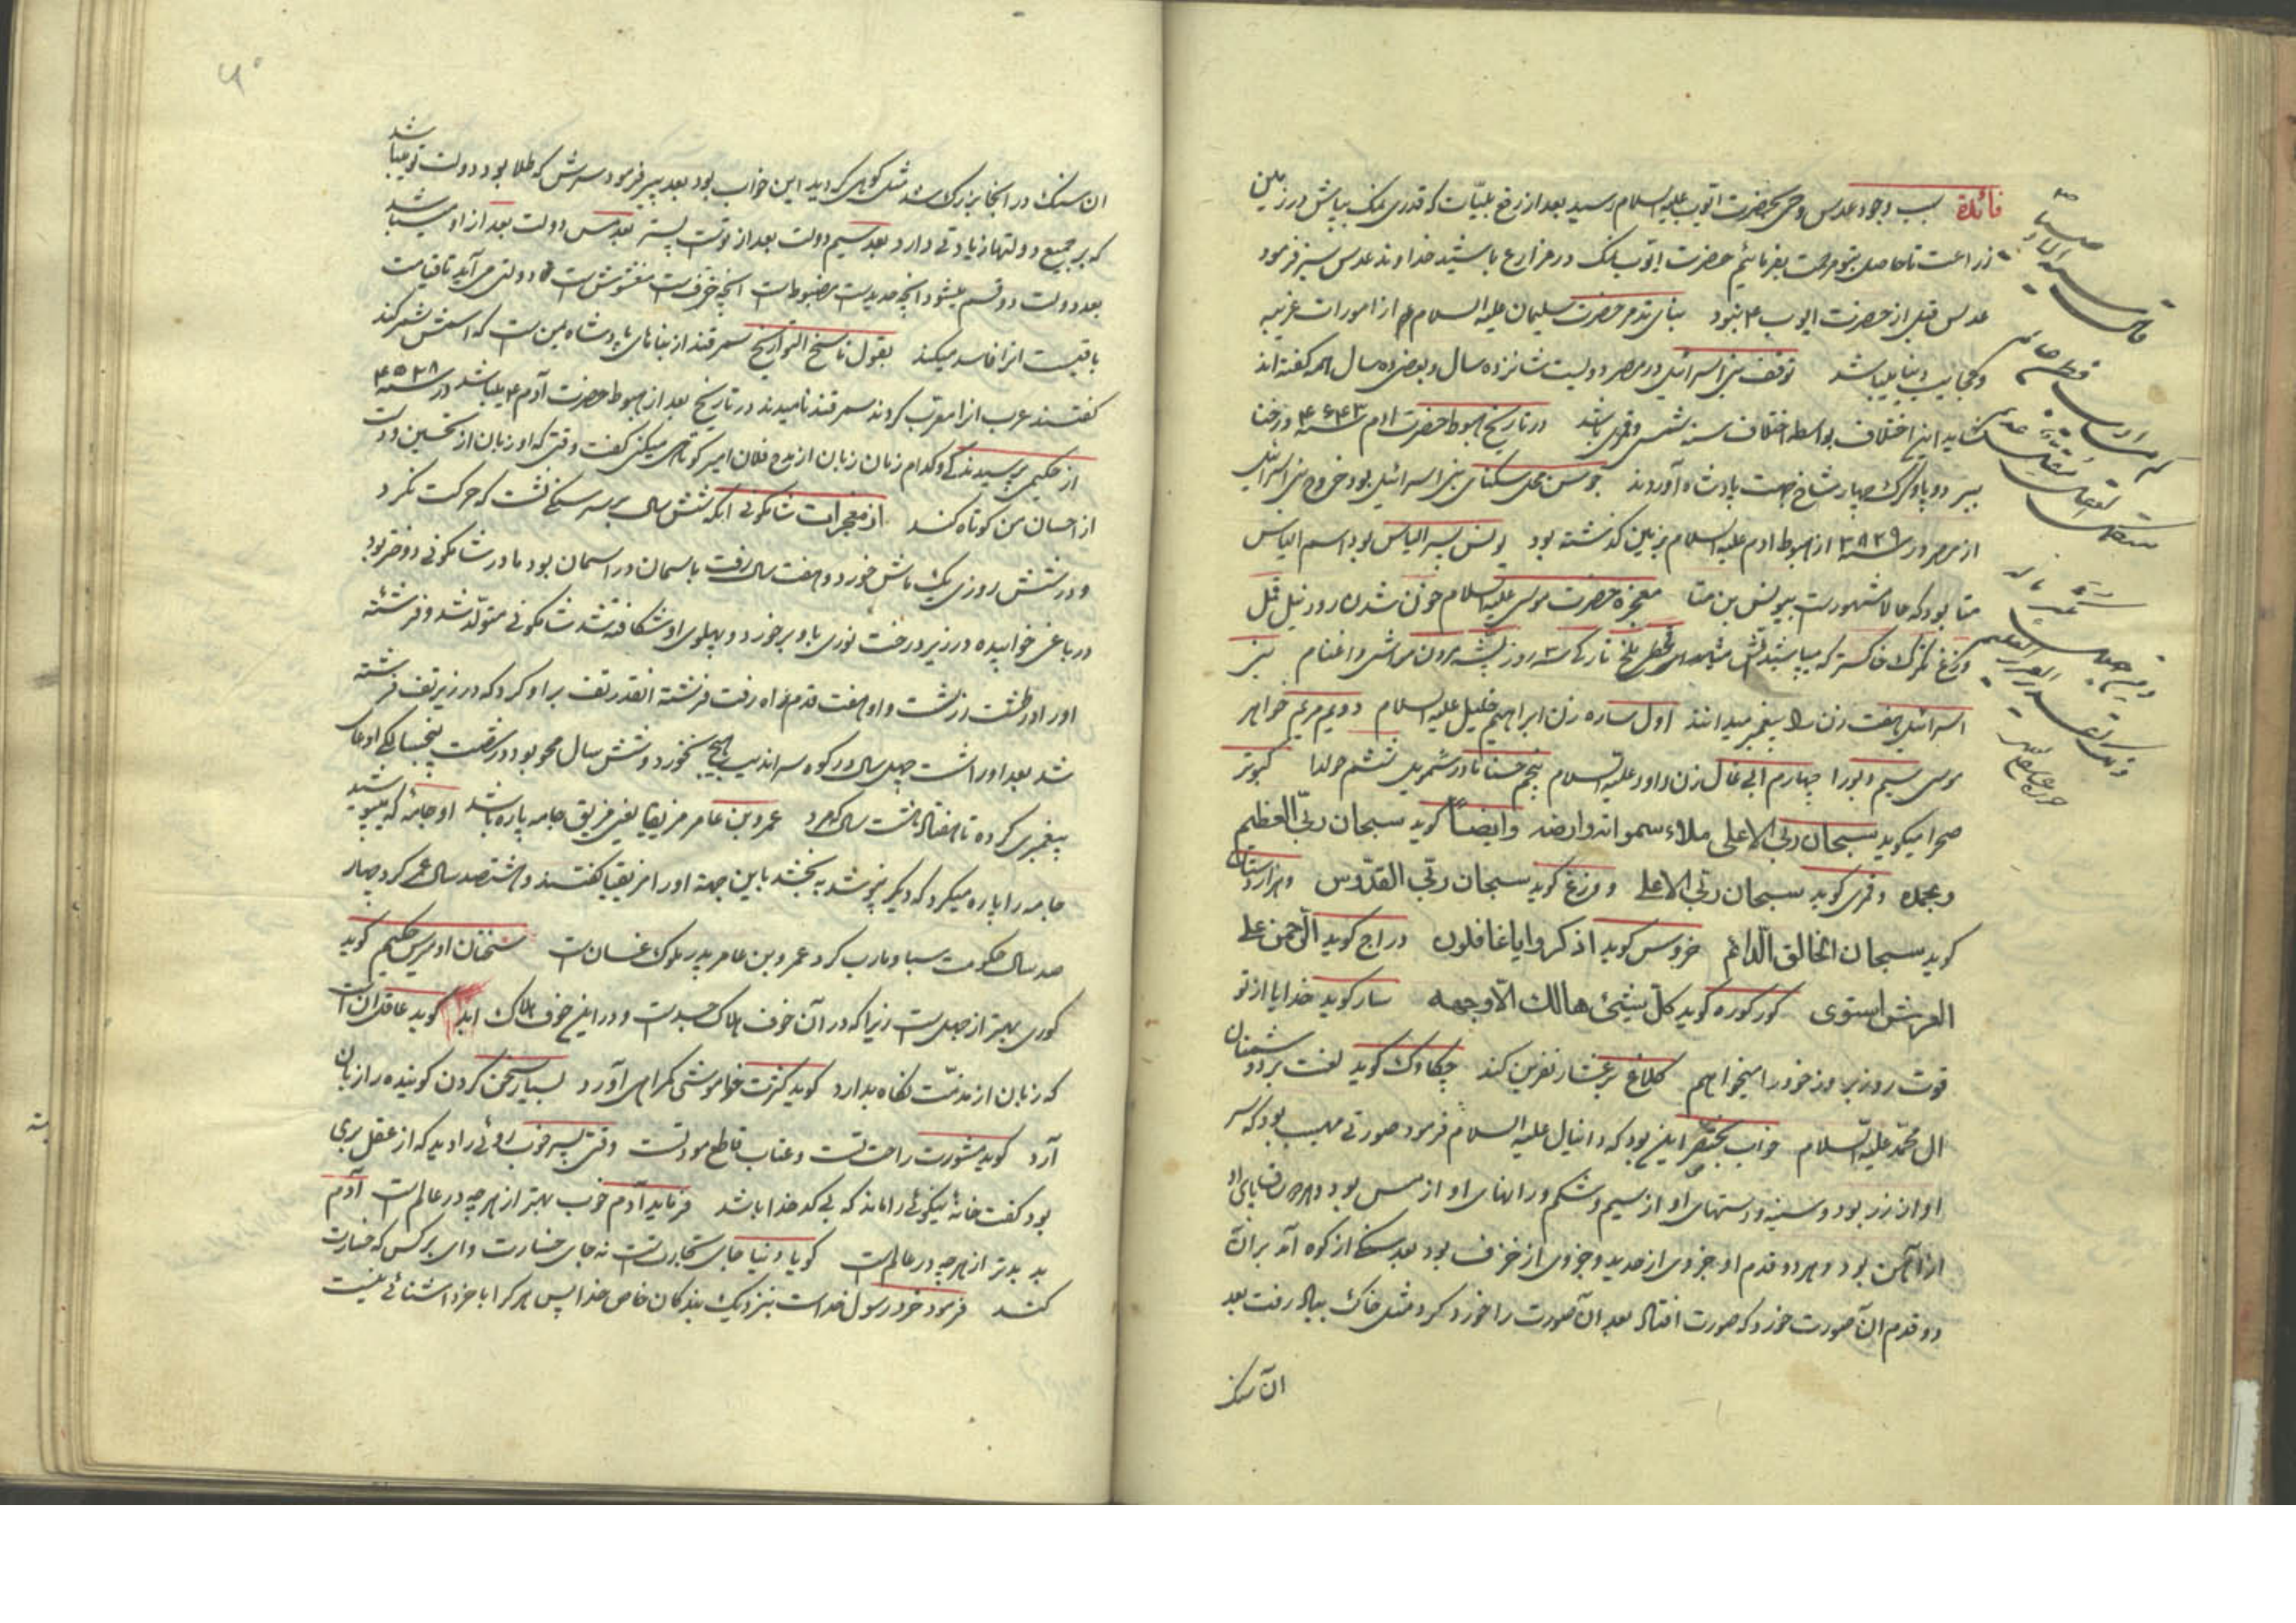 فائدة سبب وجود عدس وحی بحضرت ایّوب علیه السلام رسید بعد از رفع بلیّات که قدری نمک بپاش در زمین
زراعت تا حاصل بتو مرحمت بفرمائیم حضرت ایّوب نمک در مزارع پاشید خداوند عدس سبز فرمود
عدس قبل از حضرت ایوب ۴ نبود بنای تدمر حضرت سلیمان علیه السلام از امورات غریبه
وعجایب دنیا میباشد توقف بنی اسرائیل در مصر دویست شانزده سال و بعضی ده سال هم گفته اند
شاید این اختلاف بواسطه اختلاف سنه شمسی و قمری باشد در تاریخ هبوط حضرت آدم ۴۶۴۳ در ختا
ببر دوپا و گرگ چهار شاخ جهت پادشاه آوردند جوسن محل سکنای بنی اسرائیل بود خروج بنی اسرائیل
از مصر در سنه ۳۸۳۹ از هبوط آدم علیه السلام بزمین گذشته بود یونس پسر الیاس بود اسم الیاس
متا بود که حالا مشهور است بیونس بن متا معجزه حضرت موسی علیه السلام خون شدن رود نیل قمل
وزغ تگرگ خاکستر که بپاشید قحطی ملخ تاریکی ۳ روز پشه مردن مواشی و اغنام بنی
اسرائیل هفت زن را پیغمبر میدانند اول ساره زن ابراهیم خلیل علیه السلام دویم مریم خواهر
موسی سیم دبورا چهارم ابی غال زن داود علیه السلام پنجم حنا مادر شمویل ششم حولدا کبوتر
صحرا میگوید سبحان ربّی الاعلی ملاء سمواته وارضه وایضاً گوید سبحان ربّی العظیم
وبحمده وقمری گوید سبحان ربّی الاعلی ووزغ گوید سبحان ربّی القدّوس وهزاردستان
گوید سبحان الخالق الدّائم خروس گوید اذکروا یا غافلون دراج گوید الرّحمن علی
العرش استوی کورکوره گوید کلّ شیئ هالک الّا وجهه سار گوید خدایا از تو
قوت روز بروز خود را میخواهم کلاغ بر عشّار نفرین کند چکاوک گوید لعنت بر دشمنان
ال محمّد علیه السّلام خواب بختنصر این بود که دانیال علیه السلام فرمود صورتی مهیب بود که سر
او از زر بود و سینه و دستهای او از سیم و شکم و رانهای او از مس بود و هر دو ساقهای او
از آهن بود و هر دو قدم او جزوی از حدید و جزوی از خزف بود بعد سنگی از کوه آمد بر آن
دو قدم آن صورت خورد که صورت افتاد بعد آن صورت را خورد کرد مثل خاک بباد رفت بعد
ان سنگ
ان سنگ در آنجا بزرگ شد مثل کوهی گردید این خواب بود بعد پیر فرمود سرش که طلا بود دولت تو میباشد
که بر جمیع دولتها زیادتی دارد بعد سیم دولت بعد از توست پستر بعد مس دولت بعد از او میباشد
بعد دولت دو قسم میشود آنچه حدید است مضبوط است آنچه خزف است مغشوش است دولتی می آید تا قیامت
باقیست انرا فاسد میکند بقول ناسخ التواریخ سمرقند از بناهای پادشاه یمن است که اسمش شمر کند
گفتند عرب انرا معرّب کردند سمرقند نامیدند در تاریخ بعد از هبوط حضرت آدم ۴ میباشد در سنه ۴۵۳۸
از حکیمی پرسیدند کی و کدام زمان زبان از مدح فلان امیر کوتاهی میکنی گفت وقتی که او زبان از تحسین و دست
از احسان من کوتاه کند از معجزات شاکمونی آنکه شش سال بر سر سنگی نشست که حرکت نکرد
و در شش روزی یک ماش خورد و هفت سال رفت باسمان در اسمان بود مادر شاکمونی دو دختر بود
در باغی خوابیده در زیر درخت نوری باو برخورد و پهلوی او شکافته شد شاکمونی متولّد شد و فرشته
اورا در طشت زر شست و او هفت قدم راه رفت فرشته انقدر تف بر او کرد که در زیر تف فرشته
شد بعد او را شست چهل سال در کوه سراندیب هیچ نخورد و شش سال محو بود در شصت پنجسالگی ادعای
پیغمبری کرده تا هفتاد هشت سال بمرد عمرو بن عامر مزیقا یعنی مزیق جامه پاره باشد او جامۀ که میپوشید
جامه را پاره میکرد که دیگر نپوشد به بخشد باین جهته اورا مزیقیا گفتند و هشتصد سال عمر کرد چهار
صد سال حکومت سبا و مارب کرد عمرو بن عامر پدر ملوک غسان است سخنان ادریس حکیم گوید
کوری بهتر از جهل است زیرا که در آن خوف هلاک جسد است و در این خوف هلاک ابد گوید عاقل آنست
که زبان از مذمّت نگاه بدارد گوید کثرت خاموشی گمراهی آورد بسیار سخن کردن گوینده را زیان
آرد گوید مشورت راحتست و عتاب قاطع مودتست وقتی پسر خوب روئی را دید که از عقل بری
بود گفت خانۀ نیکوئی را ماند که بی کدخدا باشد فرماید آدم خوب بهتر از هرچه در عالم است آدم
بد بدتر از هرچه در عالم است گویا دنیا جای تجارتست نه جای خسارت وای بر کس که خسارت
کند فرمود خرد رسول خداست بنزدیک بندگان خاص خدا پس هرکرا با خرد آشنائی نیست